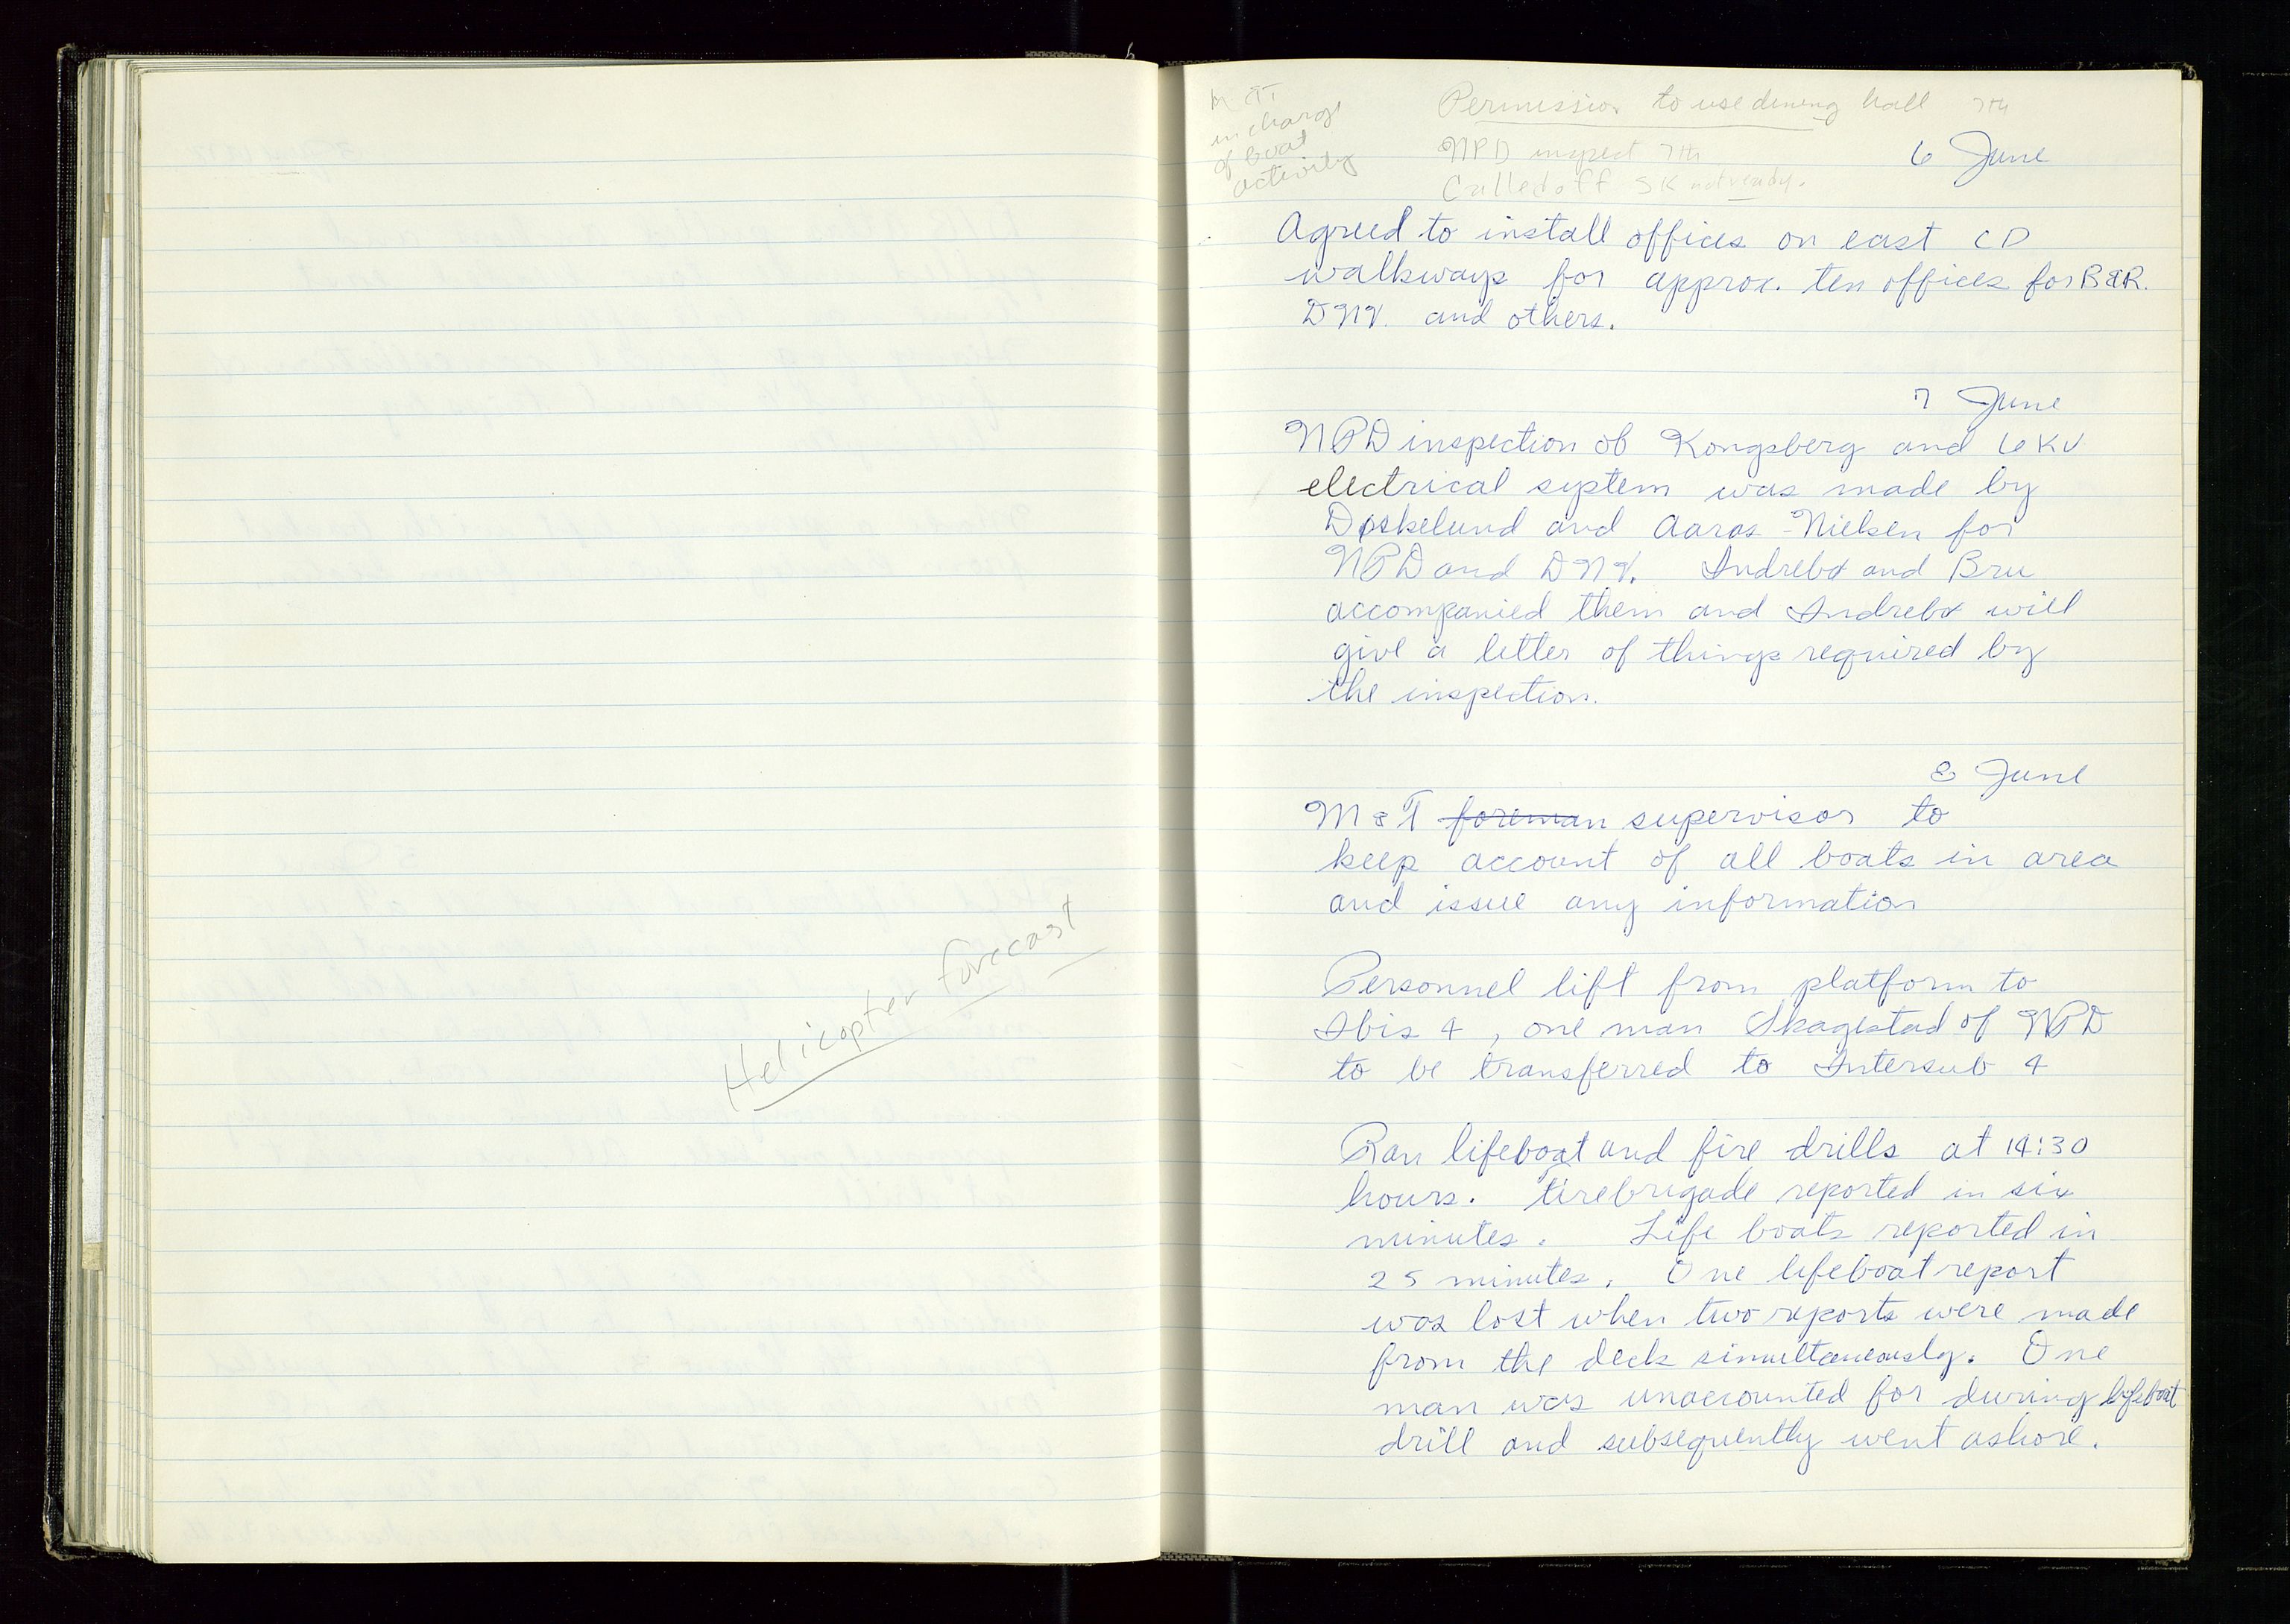 Helicopter forecast
in charge
of boat
activity
Permission to use dining hall 7th
NPD inspect 7th
Called off SK not ready.
6 June
Agreed to install offices on east CD
walkways for approx. ten offices for B&R.
DNV. and others.
7 June
NPD inspection of Kongsberg and 6KV
electrical system was made by
and Aaras-Nielsen for
NPD and DNV. Andrebø and Bru
accompanied them and Andrebø will
give a letter of things required by
the inspection.
8 June
M&T foreman supervisor to
keep account of all boats in area
and issue any information
Personnel lift from platform to
Ibis 4, one man Skagestad of NPD
to be transferred to Intersub 4
Ran lifeboat and fire drills at 14:30
hours. Firebrigade reported in six
minutes. Life boats reported in
25 minutes. One lifeboat report
was lost when two reports were made
from the deck simultaneously. One
man was unaccounted for during lifeboat
drill and subsequently went ashore.